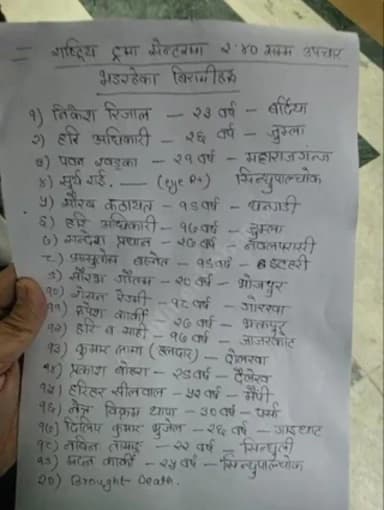 राष्ट्रिय ट्रमा सेन्टरमा २:४० सम्म उपचार
भइरहेका बिरामीहरू
१) निकेश रिजाल – २३ वर्ष – बर्दिया
२) हरि अधिकारी – २६ वर्ष – जुम्ला
३) पवन खड्का – २१ वर्ष – महाराजगंन्ज
४) सुर्य राई. — (eye सिन्धुपाल्चोक
५) सौरव कठायत – १९ वर्ष – धनगढी
६) हरि अधिकारी – १७ वर्ष – जुम्ला
७) सन्देश प्रधान – २७ वर्ष – नवलपरासी
८) बस्नेत – १९ वर्ष –
९) सौरभ गौतम – २० वर्ष – भोजपुर
१०) रेग्मी – १८ वर्ष – गोरखा
११) कार्की – २७ वर्ष – भक्तपुर
१२) हरि व शाही – १७ वर्ष –
१३) कुमार लामा – दोलखा
१४) प्रकाश बोहरा – २९ वर्ष – दैलेख
१५) हरिहर सीलवाल – ५२ वर्ष –
१६) विक्रम थापा – ३० वर्ष – पर्सा
१७) दिलिप कुमार – २६ वर्ष –
१८) नविन तामाङ – २२ वर्ष – सिन्धुली
१९) कार्की – २५ वर्ष – सिन्धुपाल्चोक
२०) Brought Death.